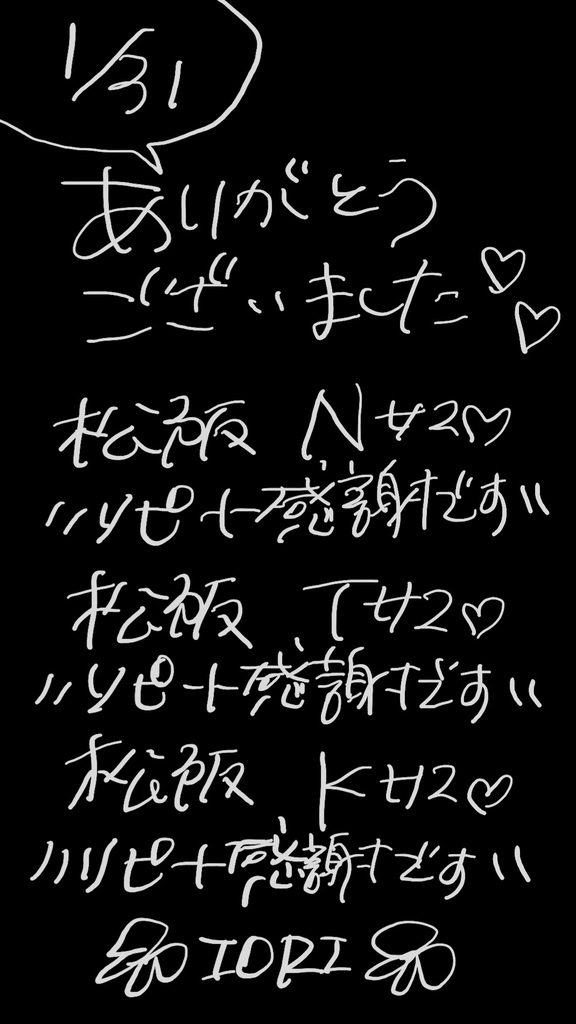 1/31
ありがとう
ございました♡♡
松阪 Nサン♡
〃リピート感謝です〃
松阪 Tサン♡
〃リピート感謝です〃
松阪 Kサン♡
〃リピート感謝です〃
IORI